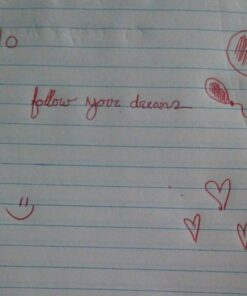 follow your dreams